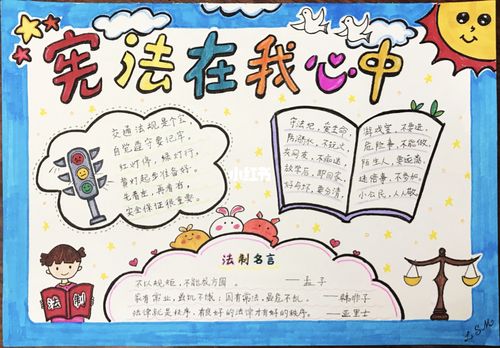 宪法在我心中
交通法规是个宝
自觉遵守要记牢。
红灯停，绿灯行，
黄灯起步准备好。
先看左，再看右，
安全保证很重要。
守法纪，爱生命，
防溺水，不玩火，
友同友，不痴迷，
放学后，即回家，
好与坏，要分清，
游戏室，不要进，
危险事，不能做，
陌生人，要远离，
迷信事，不参加，
小公民，人人敬。
小红书
法制名言
不以规矩，不能成方圆。——孟子
家有常业，虽饥不饿；国有常法，虽危不乱。——韩非子
法律就是秩序，有良好的法律才有好的秩序。——亚里士
法制
L.S.M